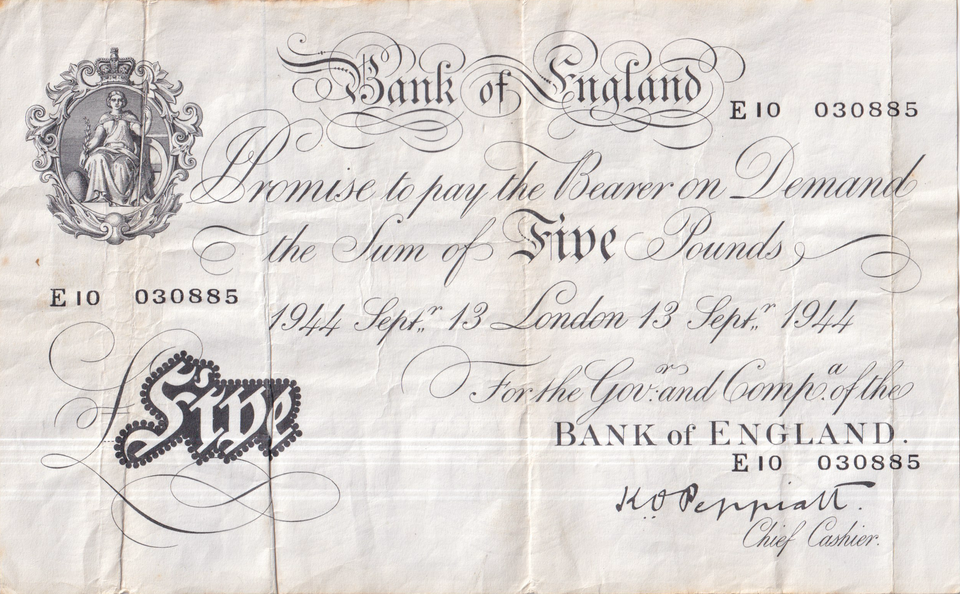 Bank of England
E 10 030885
I Promise to pay the Bearer on Demand
the Sum of Five Pounds
E 10 030885
1944 Septr. 13 London 13 Septr. 1944
For the Govr. and Compa. of the
BANK of ENGLAND.
£Five
E 10 030885
K O Peppiatt.
Chief Cashier.